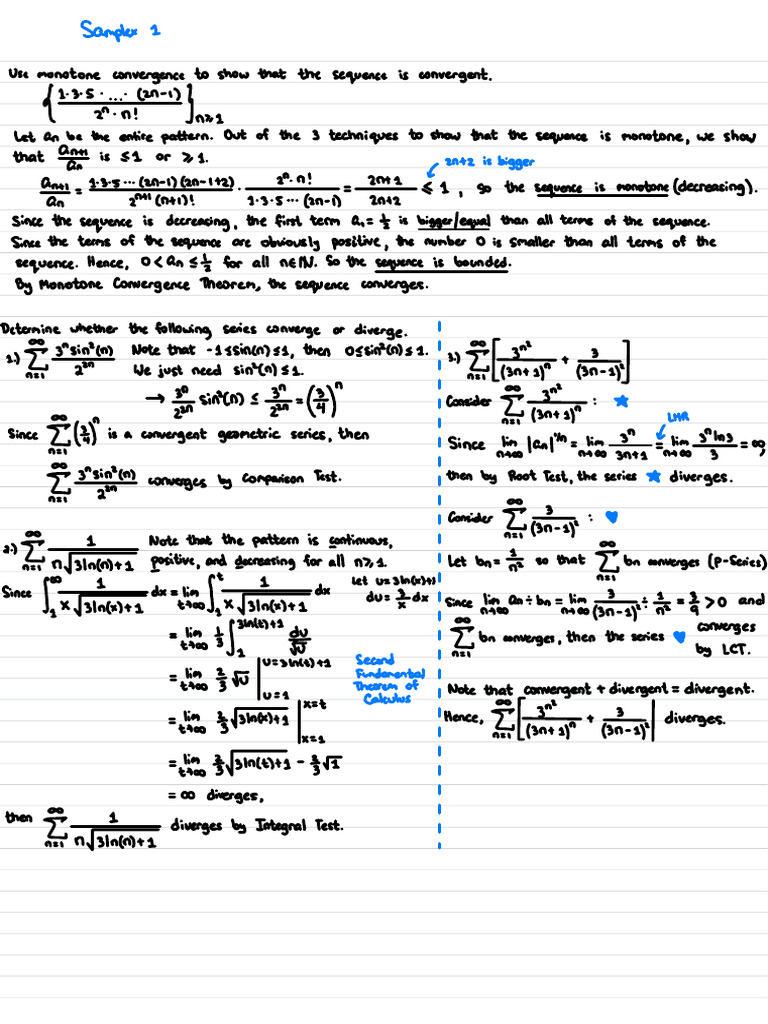 Samplex 1
Use monotone convergence to show that the sequence is convergent.
{ (1·3·5· ... · (2n-1)) / (2ⁿ · n!) }ₙ≥₁
Let an be the entire pattern. Out of the 3 techniques to show that the sequence is monotone, we show
that aₙ₊₁/aₙ is ≤ 1 or ≥ 1.
2n+2 is bigger
aₙ₊₁/aₙ = (1·3·5 ··· (2n-1)(2n-1+2)) / (2ⁿ⁺¹(n+1)!) · (2ⁿ · n!) / (1·3·5 ··· (2n-1)) = (2n+1)/(2n+2) ≤ 1, so the sequence is monotone (decreasing).
Since the sequence is decreasing, the first term a₁ = 1/2 is bigger/equal than all terms of the sequence.
Since the terms of the sequence are obviously positive, the number 0 is smaller than all terms of the
sequence. Hence, 0 < aₙ ≤ 1/2 for all n∈ℕ. So the sequence is bounded.
By Monotone Convergence Theorem, the sequence converges.
Determine whether the following series converge or diverge.
1.) ∑ₙ₌₁^∞ (3ⁿ sin²(n)) / 2²ⁿ Note that -1 ≤ sin(n) ≤ 1, then 0 ≤ sin²(n) ≤ 1.
We just need sin²(n) ≤ 1.
→ 3ⁿ/2²ⁿ sin²(n) ≤ 3ⁿ/2²ⁿ = (3/4)ⁿ
Since ∑ₙ₌₁^∞ (3/4)ⁿ is a convergent geometric series, then
∑ₙ₌₁^∞ (3ⁿ sin²(n)) / 2²ⁿ converges by Comparison Test.
2.) ∑ₙ₌₁^∞ 1 / (n√(3ln(n)+1)) Note that the pattern is continuous,
positive, and decreasing for all n≥1.
Since ∫₁^∞ 1 / (x√(3ln(x)+1)) dx = lim t→∞ ∫₁^t 1 / (x√(3ln(x)+1)) dx
let u = 3ln(x)+1
du = 3/x dx
= lim t→∞ 1/3 ∫₁^(3ln(t)+1) du/√u
= lim t→∞ 2/3 √u | u=3ln(t)+1, u=1
Second
Fundamental
Theorem of
Calculus
= lim t→∞ 2/3 √(3ln(x)+1) | x=t, x=1
= lim t→∞ 2/3 √(3ln(t)+1) - 2/3 √1
= ∞ diverges,
then ∑ₙ₌₁^∞ 1 / (n√(3ln(n)+1)) diverges by Integral Test.
3.) ∑ₙ₌₁^∞ [ 3^(n²) / (3n+1)ⁿ + 3 / (3n-1)² ]
Consider ∑ₙ₌₁^∞ 3^(n²) / (3n+1)ⁿ : ★
LHR
Since lim n→∞ |aₙ|^(1/n) = lim n→∞ 3ⁿ / (3n+1) = lim n→∞ (3ⁿ ln3) / 3 = ∞,
then by Root Test, the series ★ diverges.
Consider ∑ₙ₌₁^∞ 3 / (3n-1)² : ♥
Let bₙ = 1/n² so that ∑ₙ₌₁^∞ bn converges (P-Series)
Since lim n→∞ an ÷ bn = lim n→∞ 3 / (3n-1)² ÷ 1/n² = 3/9 > 0 and
∑ₙ₌₁^∞ bn converges, then the series ♥ converges
by LCT.
Note that convergent + divergent = divergent.
Hence, ∑ₙ₌₁^∞ [ 3^(n²) / (3n+1)ⁿ + 3 / (3n-1)² ] diverges.